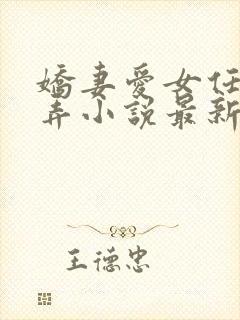 嬌妻愛女任
弄小說最新
王德忠